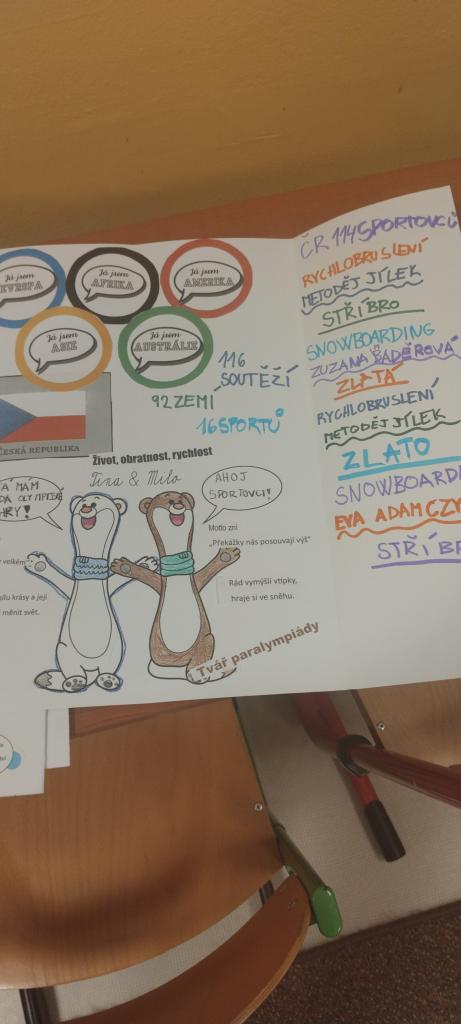 Já jsem
EVROPA
Já jsem
AFRIKA
Já jsem
AMERIKA
Já jsem
ASIE
Já jsem
AUSTRÁLIE
116
SOUTĚŽÍ
92 ZEMÍ
16 SPORTŮ
ČESKÁ REPUBLIKA
Život, obratnost, rychlost
Tina & Milo
A MÁM
HRY!
AHOJ
SPORTOVCI!
Motto zní
„Překážky nás posouvají výš"
velkém"
sílu krásy a její
měnit svět.
Rád vymýšlí vtipky,
hraje si ve sněhu.
Tvář paralympiády
ČR 114 SPORTOVCŮ
RYCHLOBRUSLENÍ
METODĚJ JÍLEK
STŘÍBRO
SNOWBOARDING
ZUZANA MADĚROVÁ
ZLATÁ
RYCHLOBRUSLENÍ
METODĚJ JÍLEK
ZLATO
SNOWBOARDI
EVA ADAMCZY
STŘÍBR